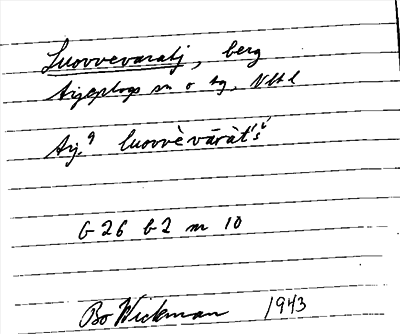 Luovvevaratj, berg
Arjeplogs sn o tg, Vbtl
Arj. luovvèvāràt́ś
G 26 b 2 m 10
Bo Wickman 1943